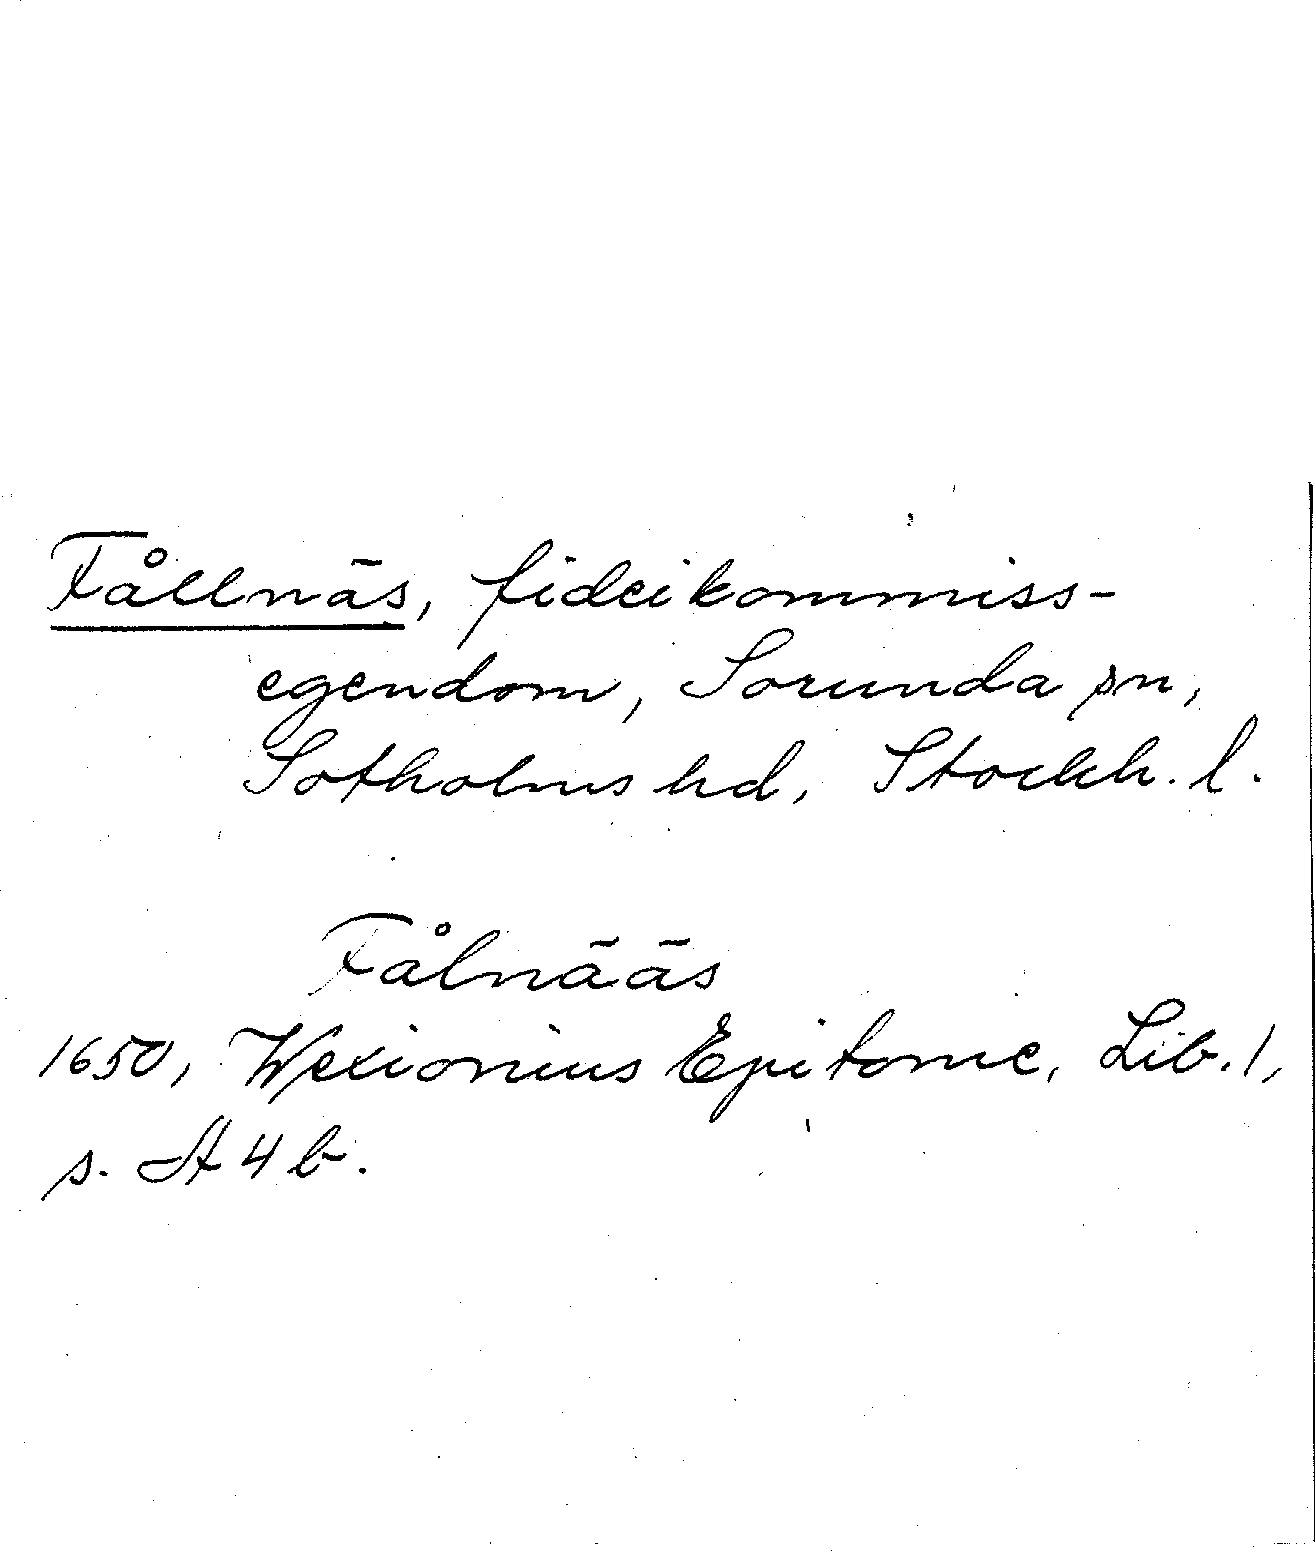 Fållnäs, fideikommiss-
egendom, Sorunda sn,
Sotholms hd, Stockh. l.
Fålnääs
1650, Wexionius Epitome, Lib. 1,
s. A 4 b.